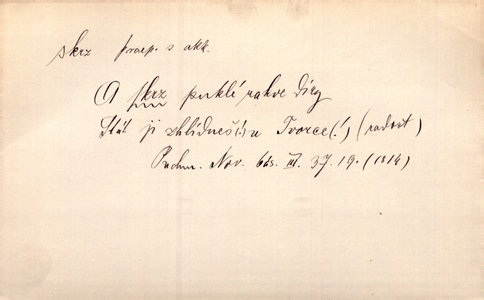 skrz praep. s akk.
A skrz puklé rakve díry
Stát ji shlídneš(!) u Tvorce(!) (radost)
Puchm. Nov. bás. III. 37. 19. (1814)